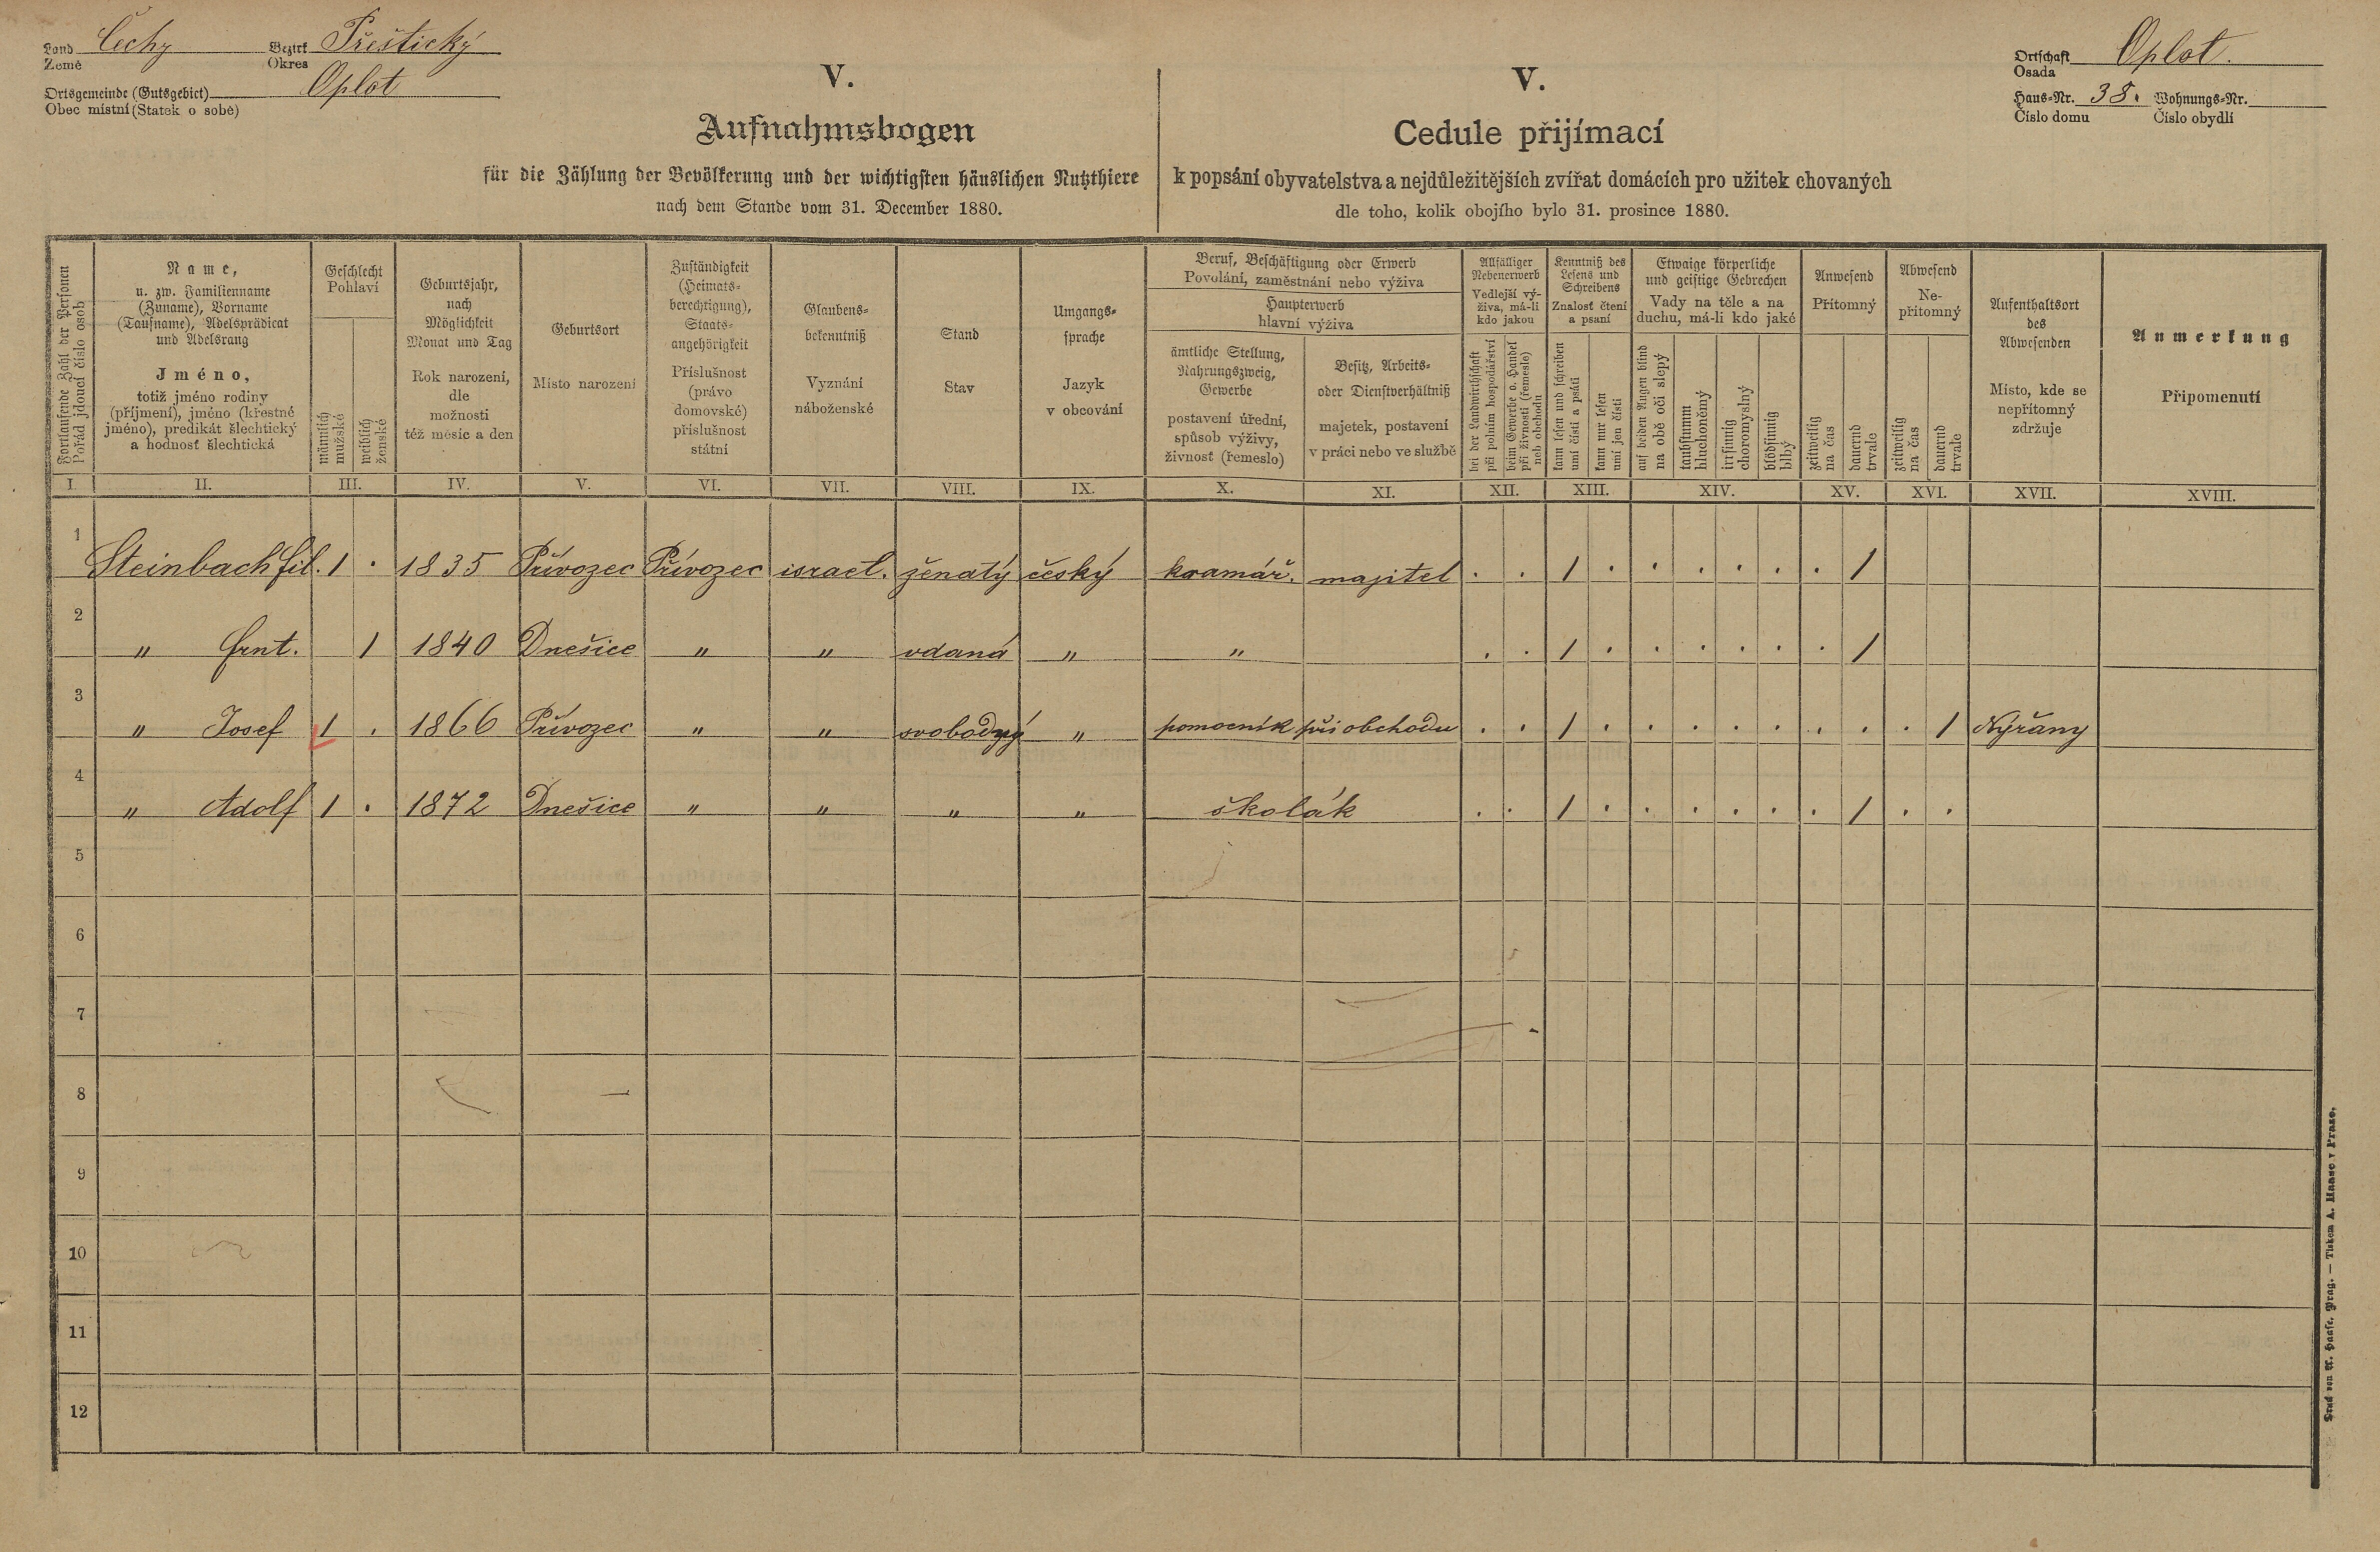 Land Čechy Bezirk Přeštický
Země Okres
Ortsgemeinde (Gutsgebiet) Oplot
Obec místní (Statek o sobě)
Ortschaft Oplot.
Osada
Haus-Nr. 38. Wohnungs-Nr.
Číslo domu Číslo obydlí
V.
Aufnahmsbogen
für die Zählung der Bevölkerung und der wichtigsten häuslichen Nutzthiere
nach dem Stande vom 31. December 1880.
V.
Cedule přijímací
k popsání obyvatelstva a nejdůležitějších zvířat domácích pro užitek chovaných
dle toho, kolik obojího bylo 31. prosince 1880.
Fortlaufende Zahl der Personen
Pořád jdoucí číslo osob
Name,
u. zw. Familienname
(Zuname), Vorname
(Taufname), Adelsprädicat
und Adelsrang
Jméno,
totiž jméno rodiny
(příjmení), jméno (křestné
jméno), predikát šlechtický
a hodnost šlechtická
Geschlecht
Pohlaví
männlich
mužské
weiblich
ženské
Geburtsjahr,
nach
Möglichkeit
Monat und Tag
Rok narození,
dle
možnosti
též měsíc a den
Geburtsort
Místo narození
Zuständigkeit
(Heimats-
berechtigung),
Staats-
angehörigkeit
Příslušnost
(právo
domovské)
příslušnost
státní
Glaubens-
bekenntniß
Vyznání
náboženské
Stand
Stav
Umgangs-
sprache
Jazyk
v obcování
Beruf, Beschäftigung oder Erwerb
Povolání, zaměstnání nebo výživa
Haupterwerb
hlavní výživa
ämtliche Stellung,
Nahrungszweig,
Gewerbe
postavení úřední,
spůsob výživy,
živnost (řemeslo)
Besitz, Arbeits-
oder Dienstverhältniß
majetek, postavení
v práci nebo ve službě
Allfälliger
Nebenerwerb
Vedlejší vý-
živa, má-li
kdo jakou
bei der Landwirthschaft
při polním hospodářství
beim Gewerbe o. Handel
při živnosti (řemesle)
neb obchodu
Kenntniß des
Lesens und
Schreibens
Znalost čtení
a psaní
kann lesen und schreiben
umí čísti a psáti
kann nur lesen
umí jen čísti
Etwaige körperliche
und geistige Gebrechen
Vady na těle a na
duchu, má-li kdo jaké
auf beiden Augen blind
na obě oči slepý
taubstumm
hluchoněmý
irrsinnig
choromyslný
blödsinnig
blbý
Anwesend
Přítomný
zeitweilig
na čas
dauernd
trvale
Abwesend
Ne-
přítomný
zeitweilig
na čas
dauernd
trvale
Aufenthaltsort
des
Abwesenden
Místo, kde se
nepřítomný
zdržuje
Anmerkung
Připomenutí
I. II. III. IV. V. VI. VII. VIII. IX. X. XI. XII. XIII. XIV. XV. XVI. XVII. XVIII.
1 Steinbach Fil. 1 . 1835 Přívozec Přívozec israel. ženatý český kramář. majitel . . 1 . . . . . . 1
2 " Ernt. 1 1840 Dnešice " " vdaná " " . . 1 . . . . . . 1
3 " Josef 1 . 1866 Přívozec " " svobodný " pomocník při obchodu . . 1 . . . . . . . . 1 Nýřany
4 " Adolf 1 . 1872 Dnešice " " " " školák . . 1 . . . . . . 1 . .
5
6
7
8
9
10
11
12
Druck von A. Haase, Prag. — Tiskem A. Haase v Praze.